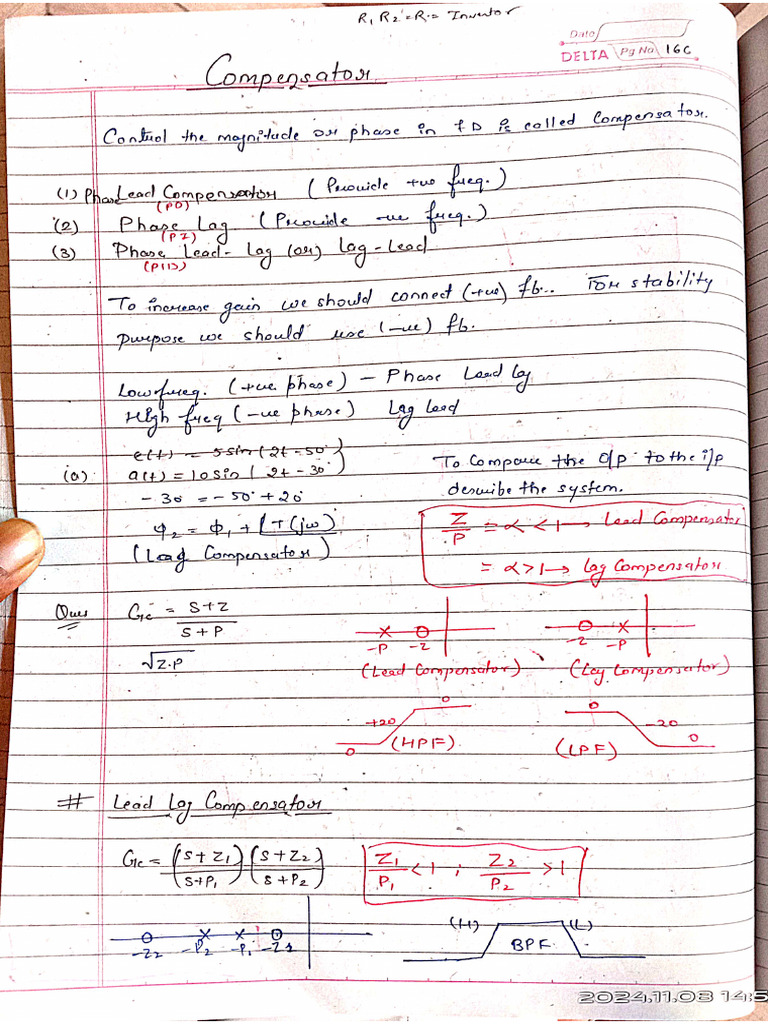 R1 R2 = R = Invertor
Date
DELTA Pg No 166
Compensator
Control the magnitude or phase in f D is called Compensator.
(1) Phase Lead Compensator (Provide +ve freq.)
(PD)
(2) Phase Lag (Provide -ve freq.)
(PI)
(3) Phase Lead-Lag (or) Lag-Lead
(PID)
To increase gain we should connect (+ve) fb.. For stability
purpose we should use (-ve) fb.
Low freq. (+ve phase) - Phase Lead lag
High freq (-ve phase) Lag lead
e(t) = 5sin(2t-50°)
(a) a(t) = 10sin(2t-30°)
To Compare the O/P to the i/p
-30 = -50°+20°
describe the system.
φ2 = φ1 + ∠T(jω)
(Lead Compensator)
Z/P = α < 1 → Lead Compensator
= α > 1 → Lag Compensator
Ques Gc = S+Z / S+P
√Z.P
-P -Z
(Lead Compensator)
-Z -P
(Lag Compensator)
0 +20 0
(HPF)
0 -20 0
(LPF)
# Lead Lag Compensator
Gc = (S+Z1)/(S+P1) (S+Z2)/(S+P2)
Z1/P1 < 1 ; Z2/P2 > 1
-Z2 -P2 -P1 -Z1
(H) (L)
BPF
2024.11.08 14:5